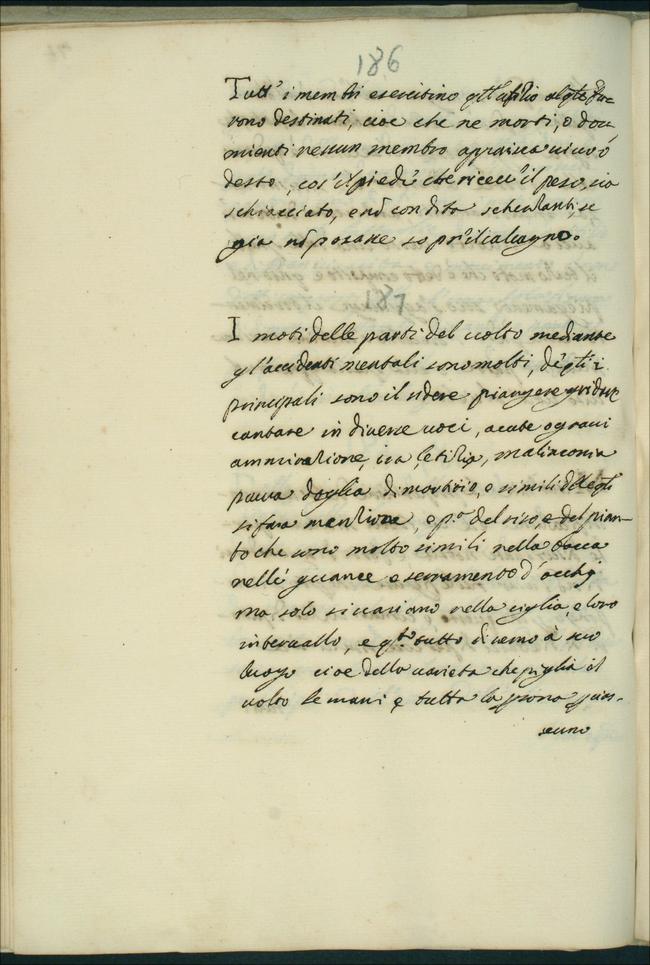 186
Tutt' i membri esercitino qll' ufitio al qle fu-
rono destinati, cioe che ne morti, o dor-
mienti nessun membro aparisca vivo ó
desto, cos' il piedi che ricev' il peso, sia
schiacciato, e nõ con dita scherzanti, se
gia nõ posasse sopr' il calcagno.
187
I moti delle parti del volto mediante
gl' accidenti mentali sono molti, de qlli i
principali sono il ridere piangere gridare
cantare in diverse voci, acute o gravi
ammirazione, ira, letitia, malinconia
paura doglia di martirio, e simili delle qli
si fara mentione, e p.ᵒ del riso, e del pian-
to che sono molto simili nella bocca
nelle guance e serramento d' occhj
ma solo si variano nella ciglia, e loro
intervallo, e qto tutto diremo à suo
luogo cioe della varieta che piglia il
volto le mani e tutta la psona p cias-
cuno